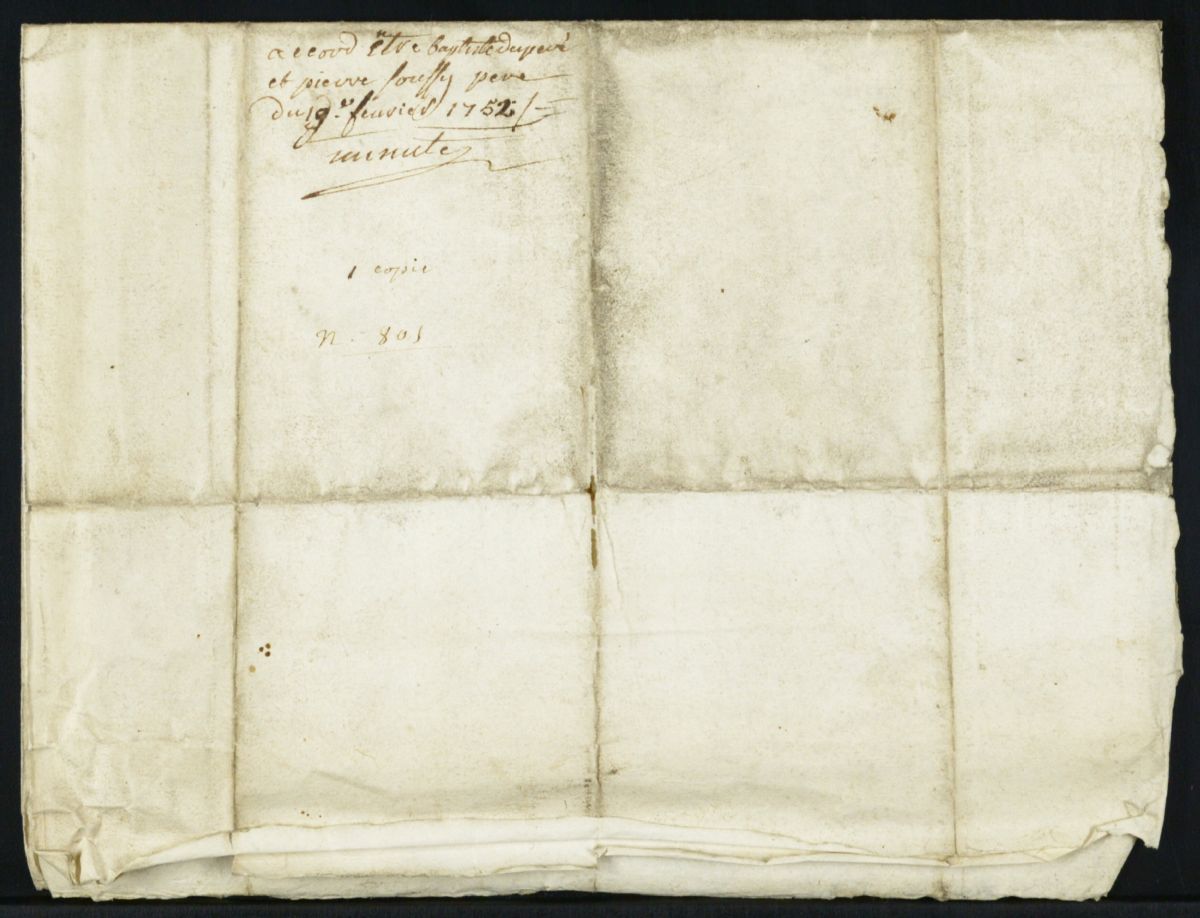 accord Etre baptiste duperé
et pierre soussy pere
du 19e. feurier 1752
minute
1 copie
N. 801